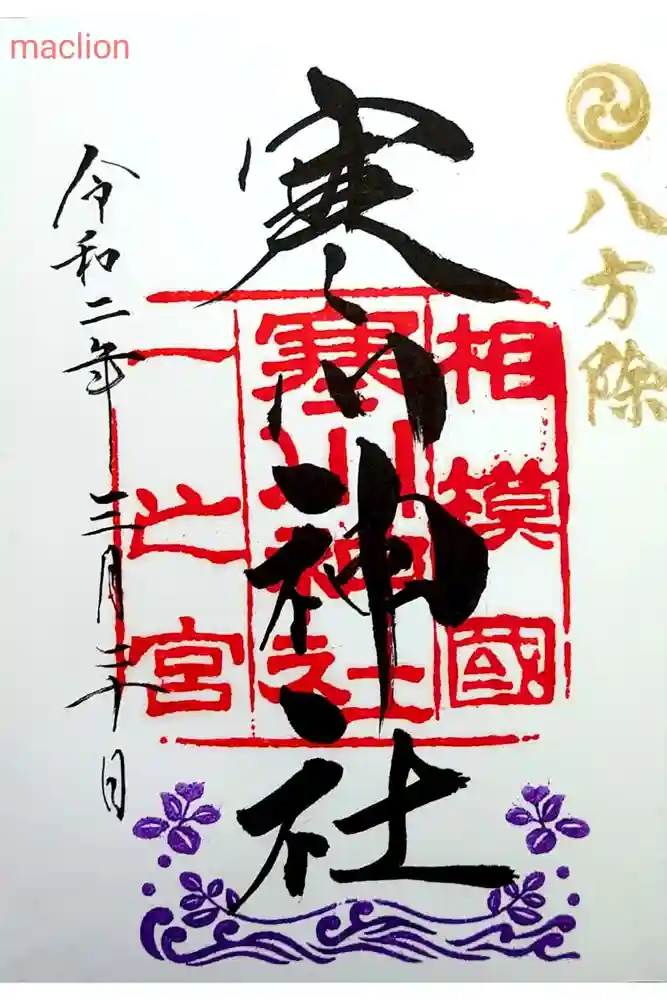 maclion
八方除
寒川神社
相模國
寒川神社
一之宮
令和二年三月三十日